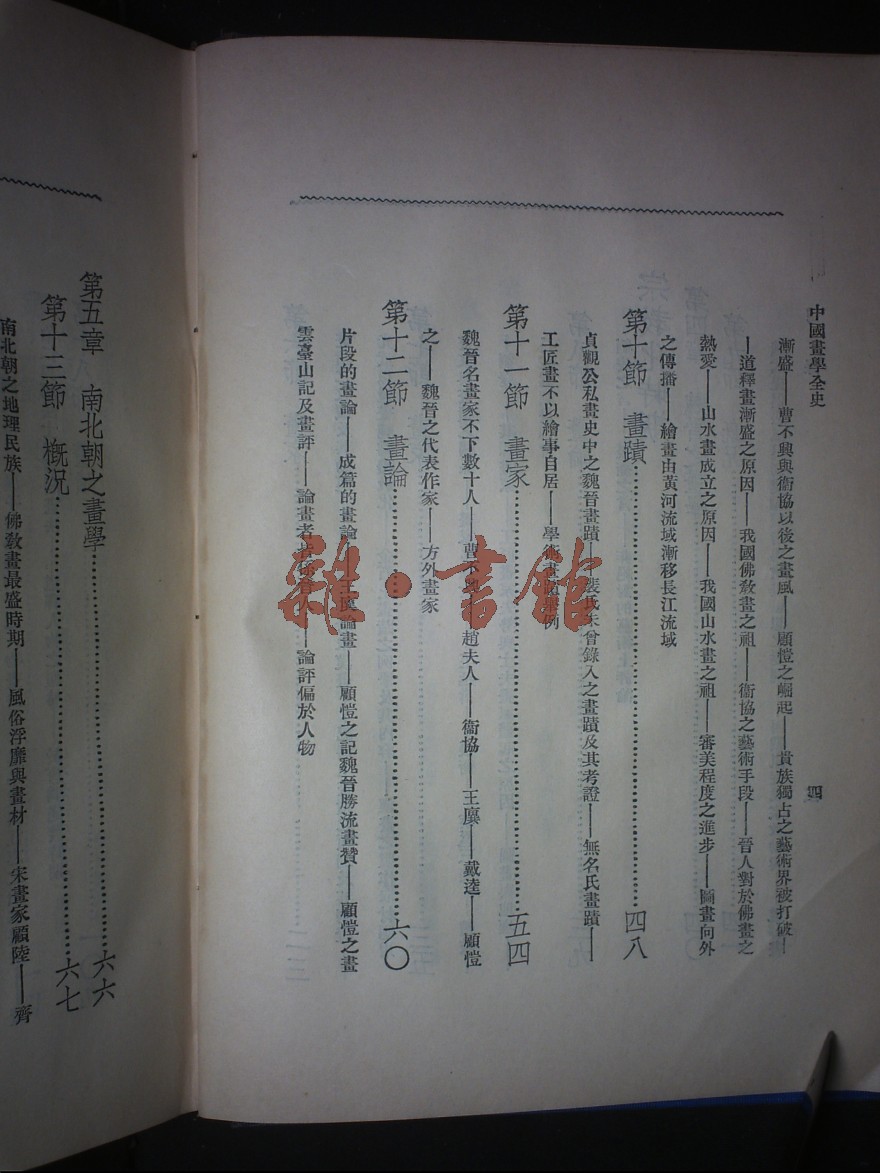 中國畫學全史
四
漸盛——曹不興與衞協以後之畫風——顧愷之崛起——貴族獨占之藝術界被打破—
—道釋畫漸盛之原因——我國佛教畫之祖——衞協之藝術手段——晉人對於佛畫之
熱愛——山水畫成立之原因——我國山水畫之祖——審美程度之進步——圖畫向外
之傳播——繪畫由黃河流域漸移長江流域
第十節 畫蹟……四八
貞觀公私畫史中之魏晉畫蹟——裴氏未曾錄入之畫蹟及其考證——無名氏畫蹟——
工匠畫不以繪事自居——學術畫 例
第十一節 畫家……五四
魏晉名畫家不下數十人——曹不興——趙夫人——衞協——王廙——戴逵——顧愷
之——魏晉之代表作家——方外畫家
第十二節 畫論……六〇
片段的畫論——成篇的畫論——王廙論畫——顧愷之記魏晉勝流畫贊——顧愷之畫
雲臺山記及畫評——論畫者皆 ——論評偏於人物
第五章 南北朝之畫學……六六
第十三節 概況……六七
南北朝之地理民族——佛教畫最盛時期——風俗浮靡與畫材——宋畫家顧陸——齊
雜·書館